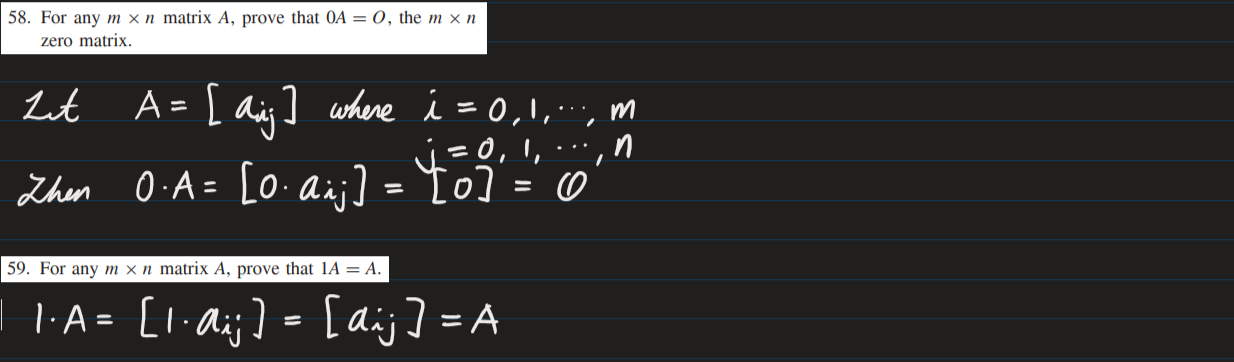 58. For any m × n matrix A, prove that 0A = O, the m × n
zero matrix.
Let A = [aij] where i = 0, 1, ..., m
j = 0, 1, ..., n
Then 0·A = [0·aij] = [0] = O
59. For any m × n matrix A, prove that 1A = A.
1·A = [1·aij] = [aij] = A